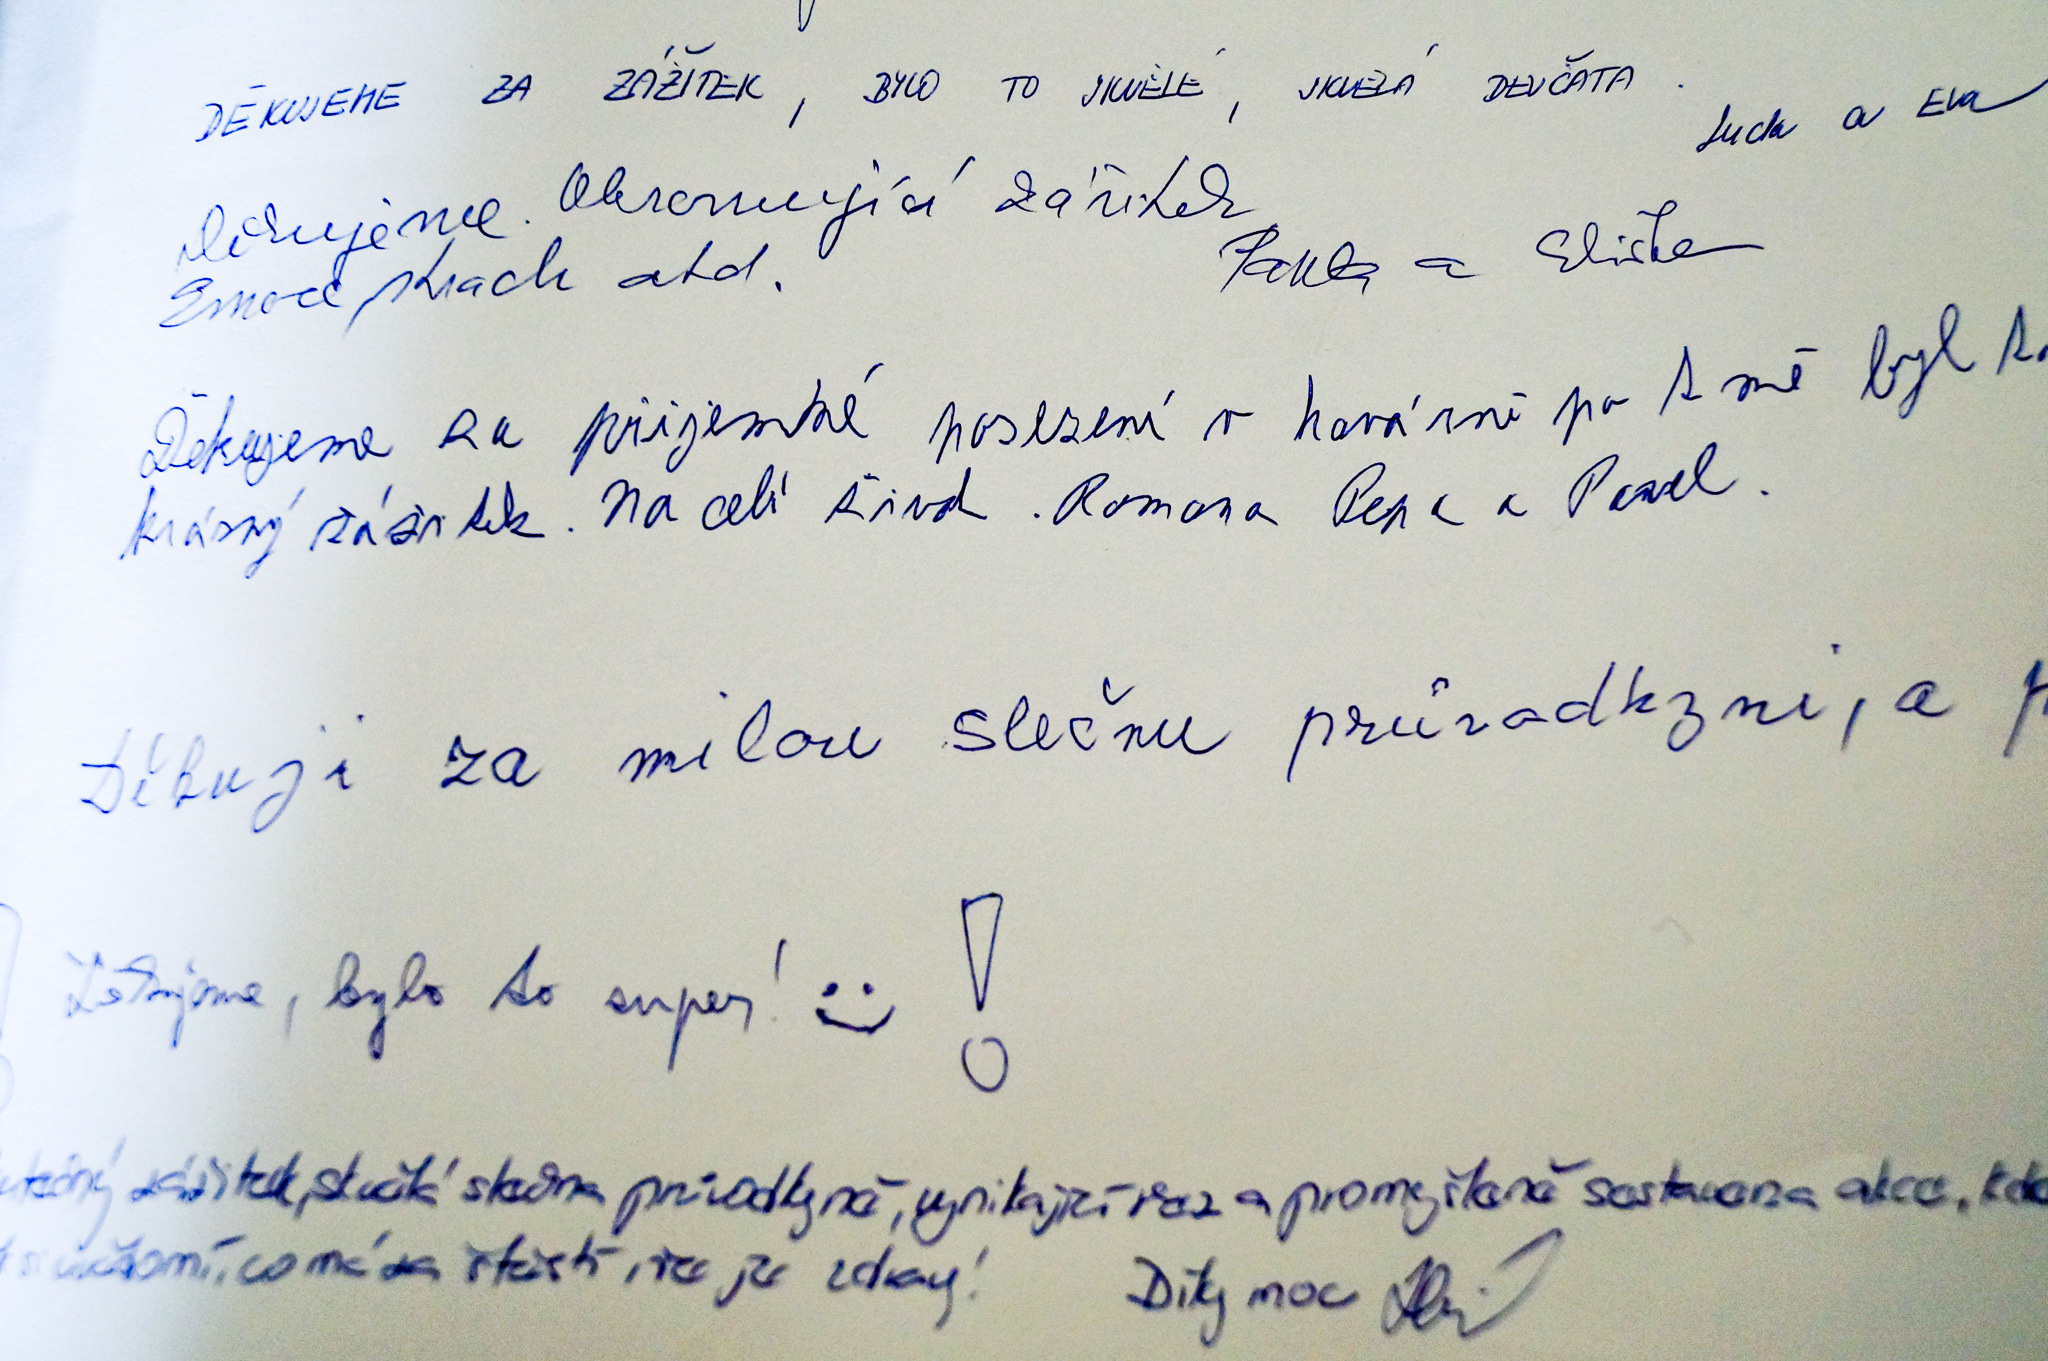 DĚKUJEME ZA ZÁŽITEK, BYLO TO SKVĚLÉ, SKVĚLÁ DEVČATA.
Luda a Eva
Děkujeme. Ohromující zážitek
Emoce, strach atd.
Pavla a Eliška
Děkujeme za příjemné posezení v kavárně po tmě byl to
krásný zážitek. Na celí život. Romana Pepa a Pavel.
Děkuji za milou slečnu průvodkyni, a
Děkujeme, bylo to super! :)
!
zážitek, skvělá slečna průvodkyně, vynikající ráz a promyšleně sestavena akce, kdo
si uvědomí, co má za štěstí, že je zdravý! Díky moc